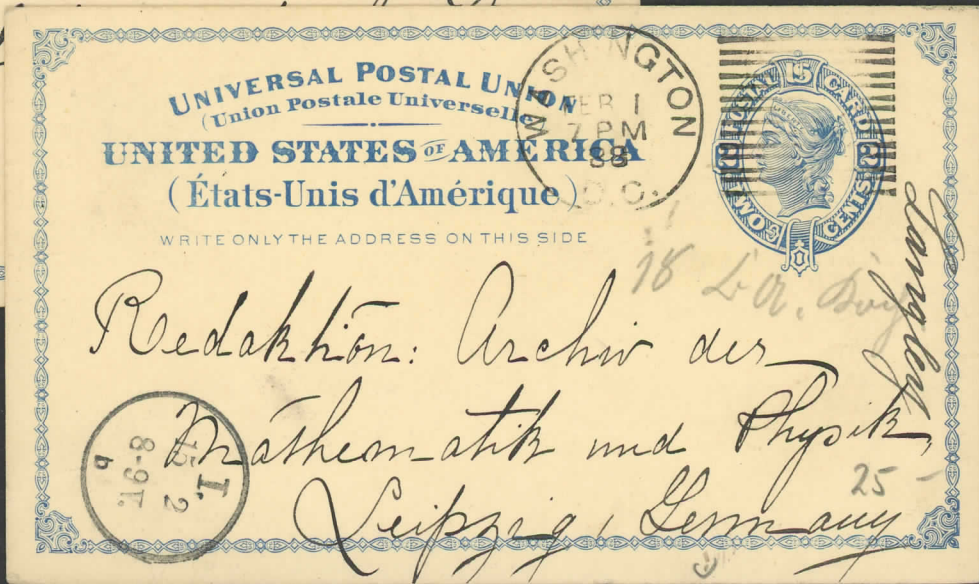 UNIVERSAL POSTAL UNION
(Union Postale Universelle)
UNITED STATES OF AMERICA
(États-Unis d'Amérique)
WRITE ONLY THE ADDRESS ON THIS SIDE
WASHINGTON
FEB 1
7 PM
88
D.C.
U.S. POSTAL CARD
TWO CENTS
Langley
18
Redaktion: Archiv der
Mathematik und Physik,
Leipzig, Germany
25 -
I.
15 2
8-9V.
b